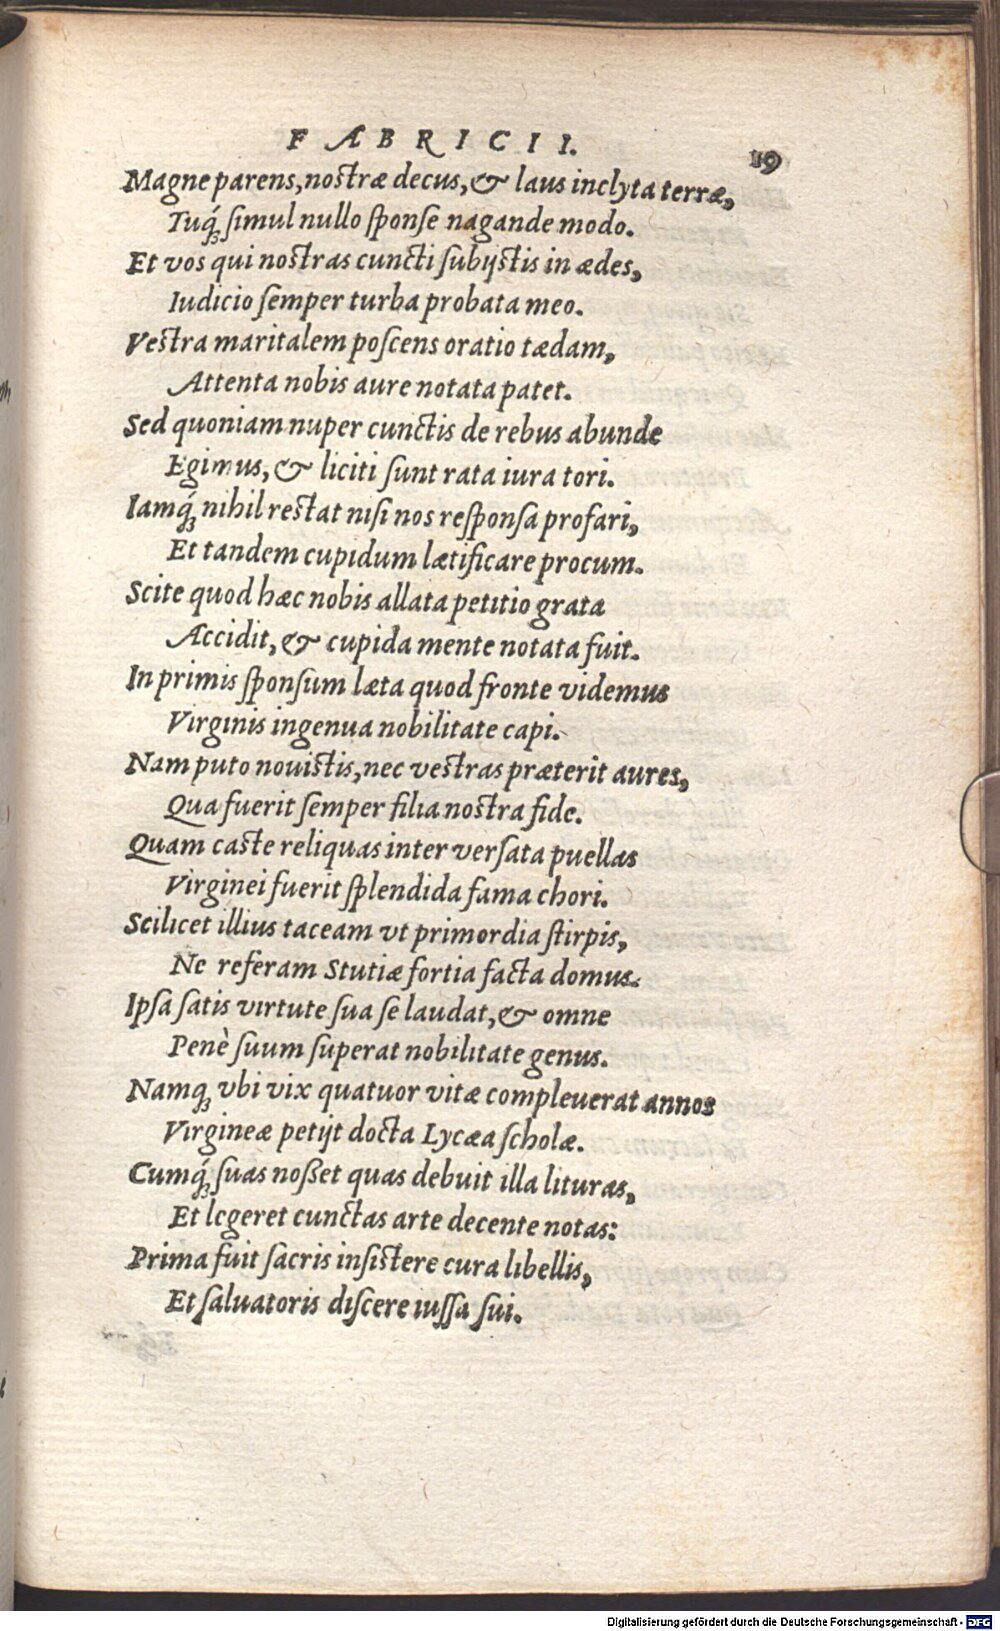 FABRICII. 19
Magne parens, nostræ decus, & laus inclyta terræ,
Tuq́; simul nullo sponse nagande modo.
Et vos qui nostras cuncti subijstis in ædes,
Iudicio semper turba probata meo.
Vestra maritalem poscens oratio tædam,
Attenta nobis aure notata patet.
Sed quoniam nuper cunctis de rebus abunde
Egimus, & liciti sunt rata iura tori.
Iamq́; nihil restat nisi nos responsa profari,
Et tandem cupidum lætificare procum.
Scite quod hæc nobis allata petitio grata
Accidit, & cupida mente notata fuit.
In primis sponsum læta quod fronte videmus
Virginis ingenua nobilitate capi.
Nam puto nouistis, nec vestras præterit aures,
Qua fuerit semper filia nostra fide.
Quam caste reliquas inter versata puellas
Virginei fuerit splendida fama chori.
Scilicet illius taceam vt primordia stirpis,
Ne referam Stutiæ fortia facta domus.
Ipsa satis virtute sua se laudat, & omne
Penè suum superat nobilitate genus.
Namq; vbi vix quatuor vitæ compleuerat annos
Virgineæ petijt docta Lycæa scholæ.
Cumq́; suas noßet quas debuit illa lituras,
Et legeret cunctas arte decente notas:
Prima fuit sacris insistere cura libellis,
Et saluatoris discere iussa sui.
Digitalisierung gefördert durch die Deutsche Forschungsgemeinschaft - DFG